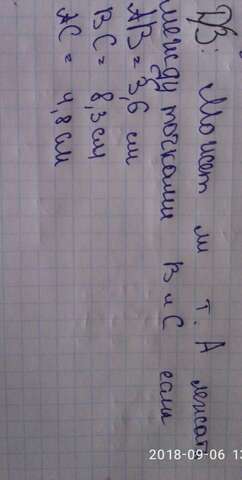 Д/З: Может ли т. А лежать
между точками В и С если
АВ = 3,6 см
ВС = 8,3 см
АС = 4,8 см
2018-09-06 13